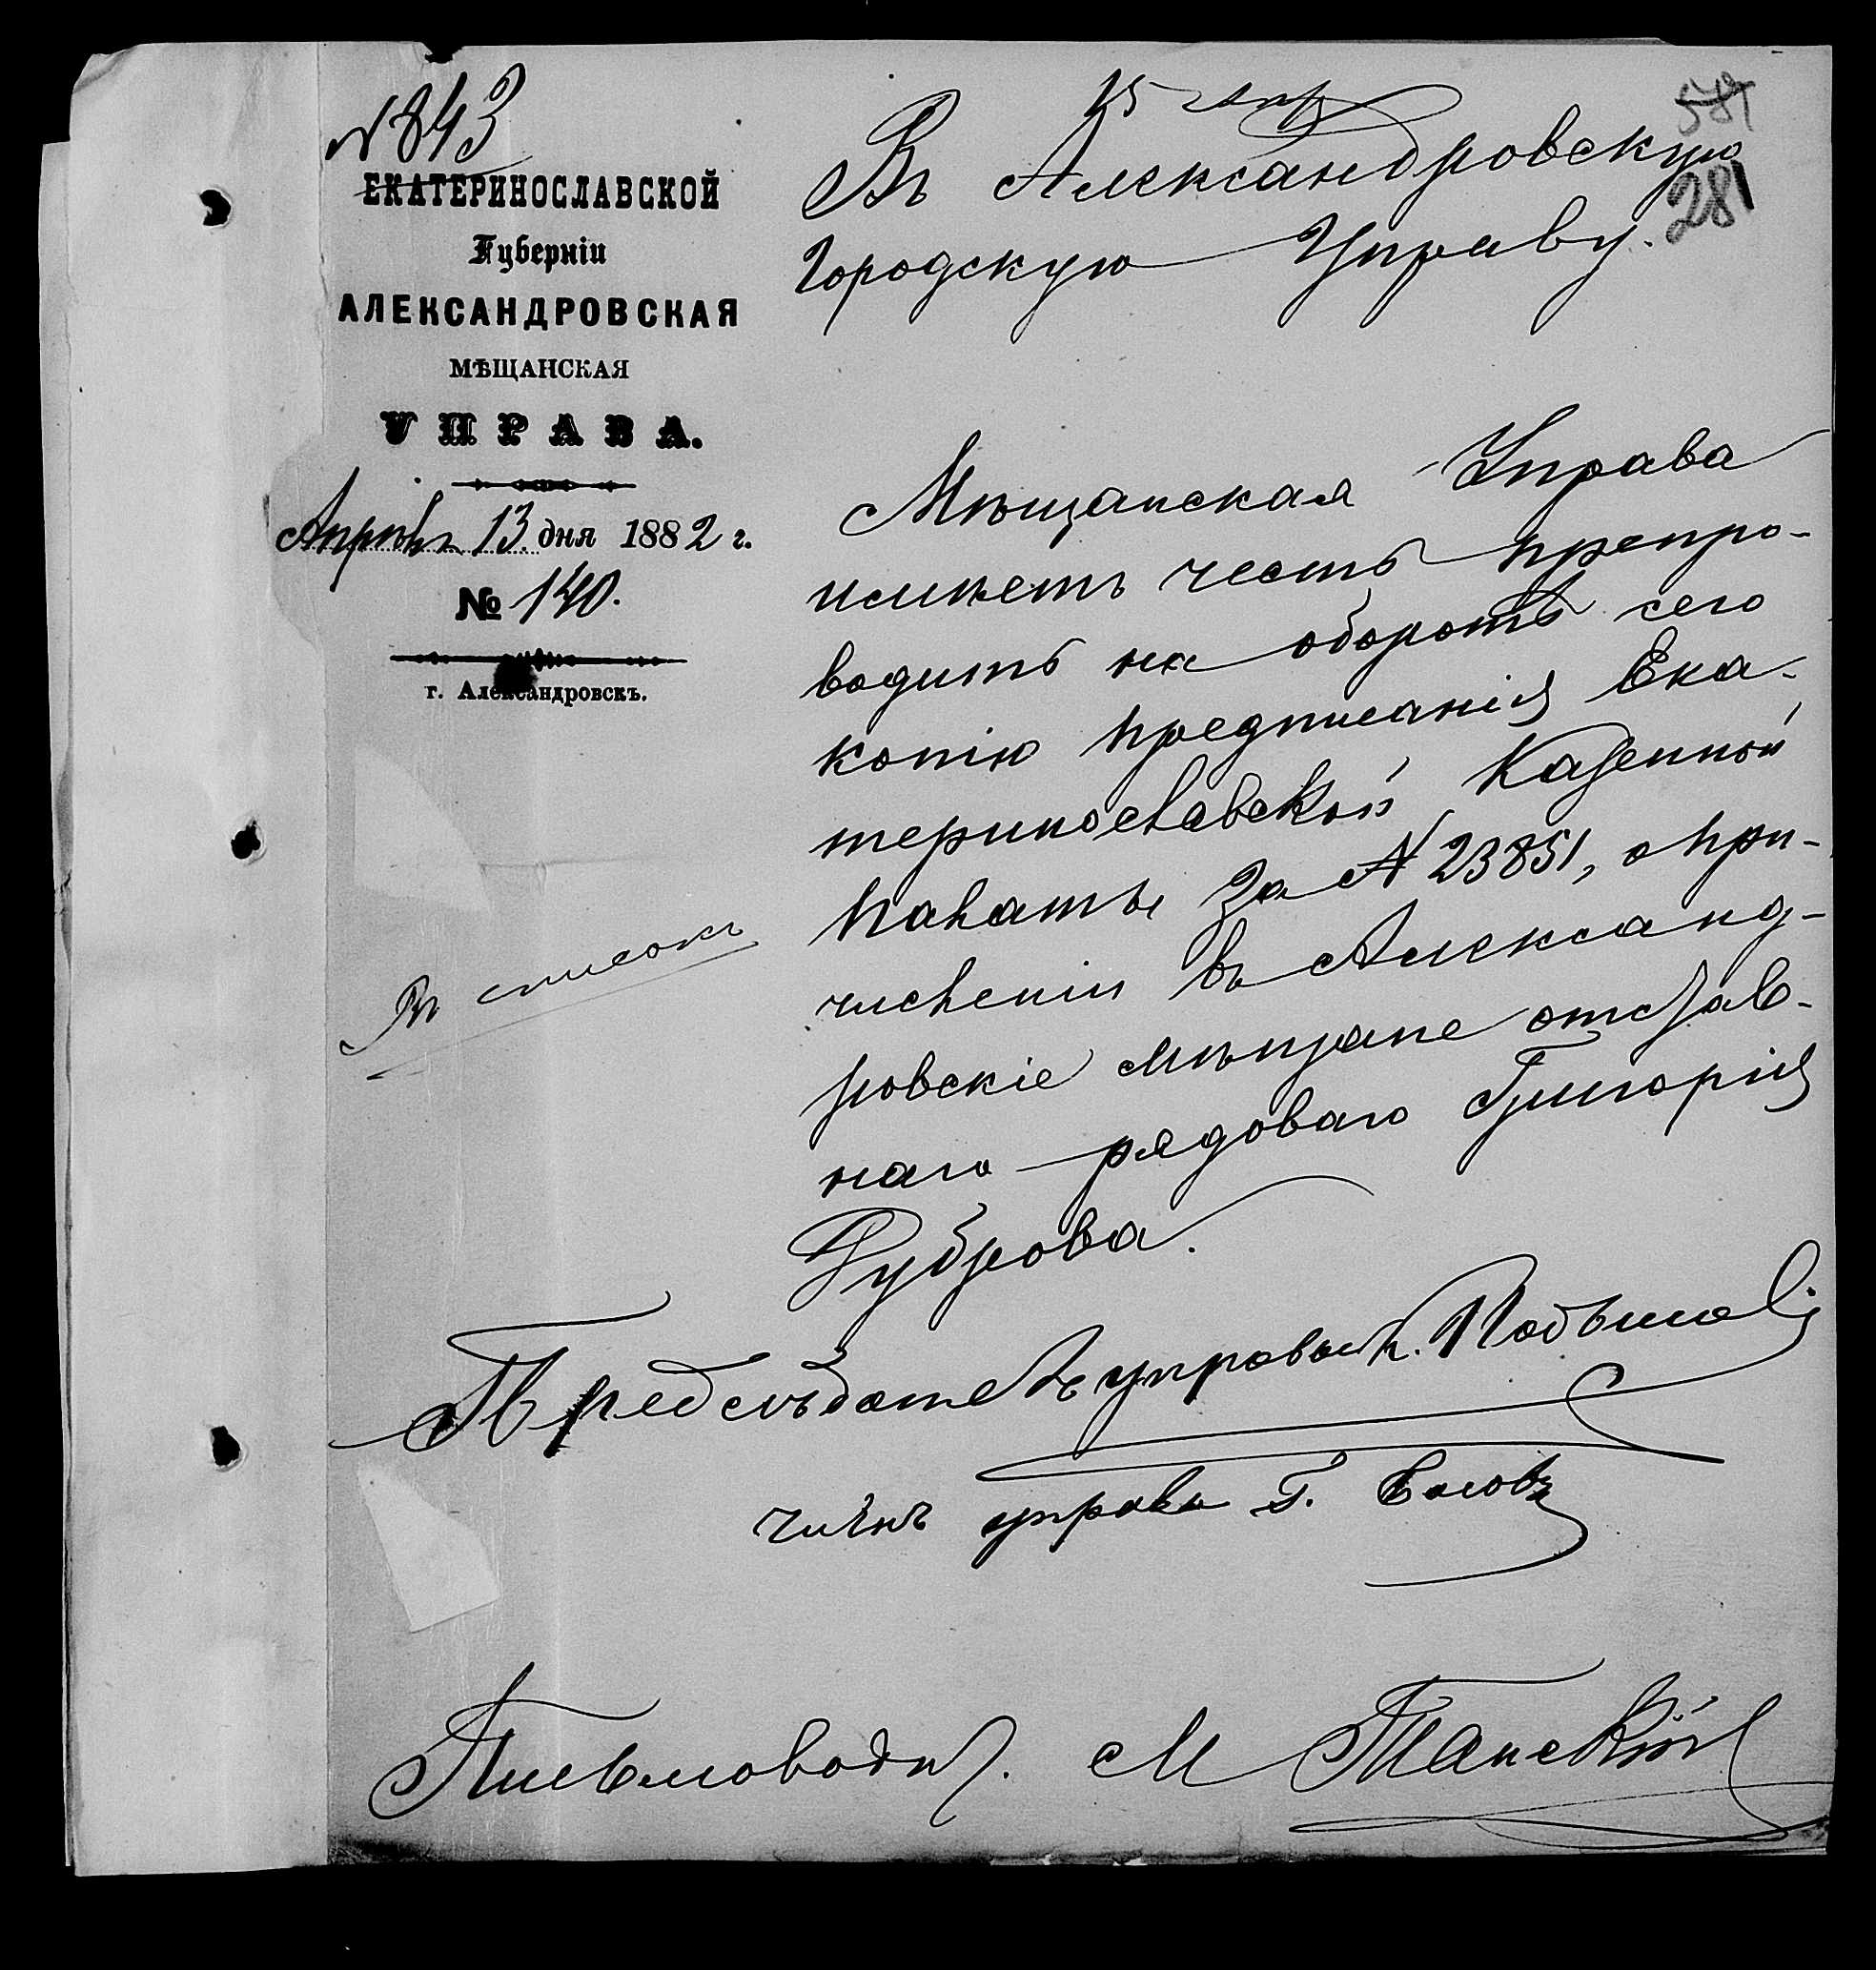 № 843
ЕКАТЕРИНОСЛАВСКОЙ
Губерніи
АЛЕКСАНДРОВСКАЯ
МѢЩАНСКАЯ
УПРАВА.
Апрѣля 13 дня 1882 г.
№ 140.
г. Александровскъ.
Въ списокъ
15 апр
581
281
Въ Александровскую
Городскую Управу.
Мѣщанская Управа
имѣетъ честь препро-
водить на оборотѣ сего
копію предписанія Ека-
теринославской Казенной
Палаты за № 23851, о при-
численіи въ Александ-
ровскіе мѣщане отстав-
наго рядоваго Григорія
Руброва.
Предсѣдатель управы
членъ управы Г.
Письмоводит. М Танскій